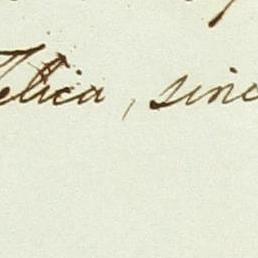 felica, sinc